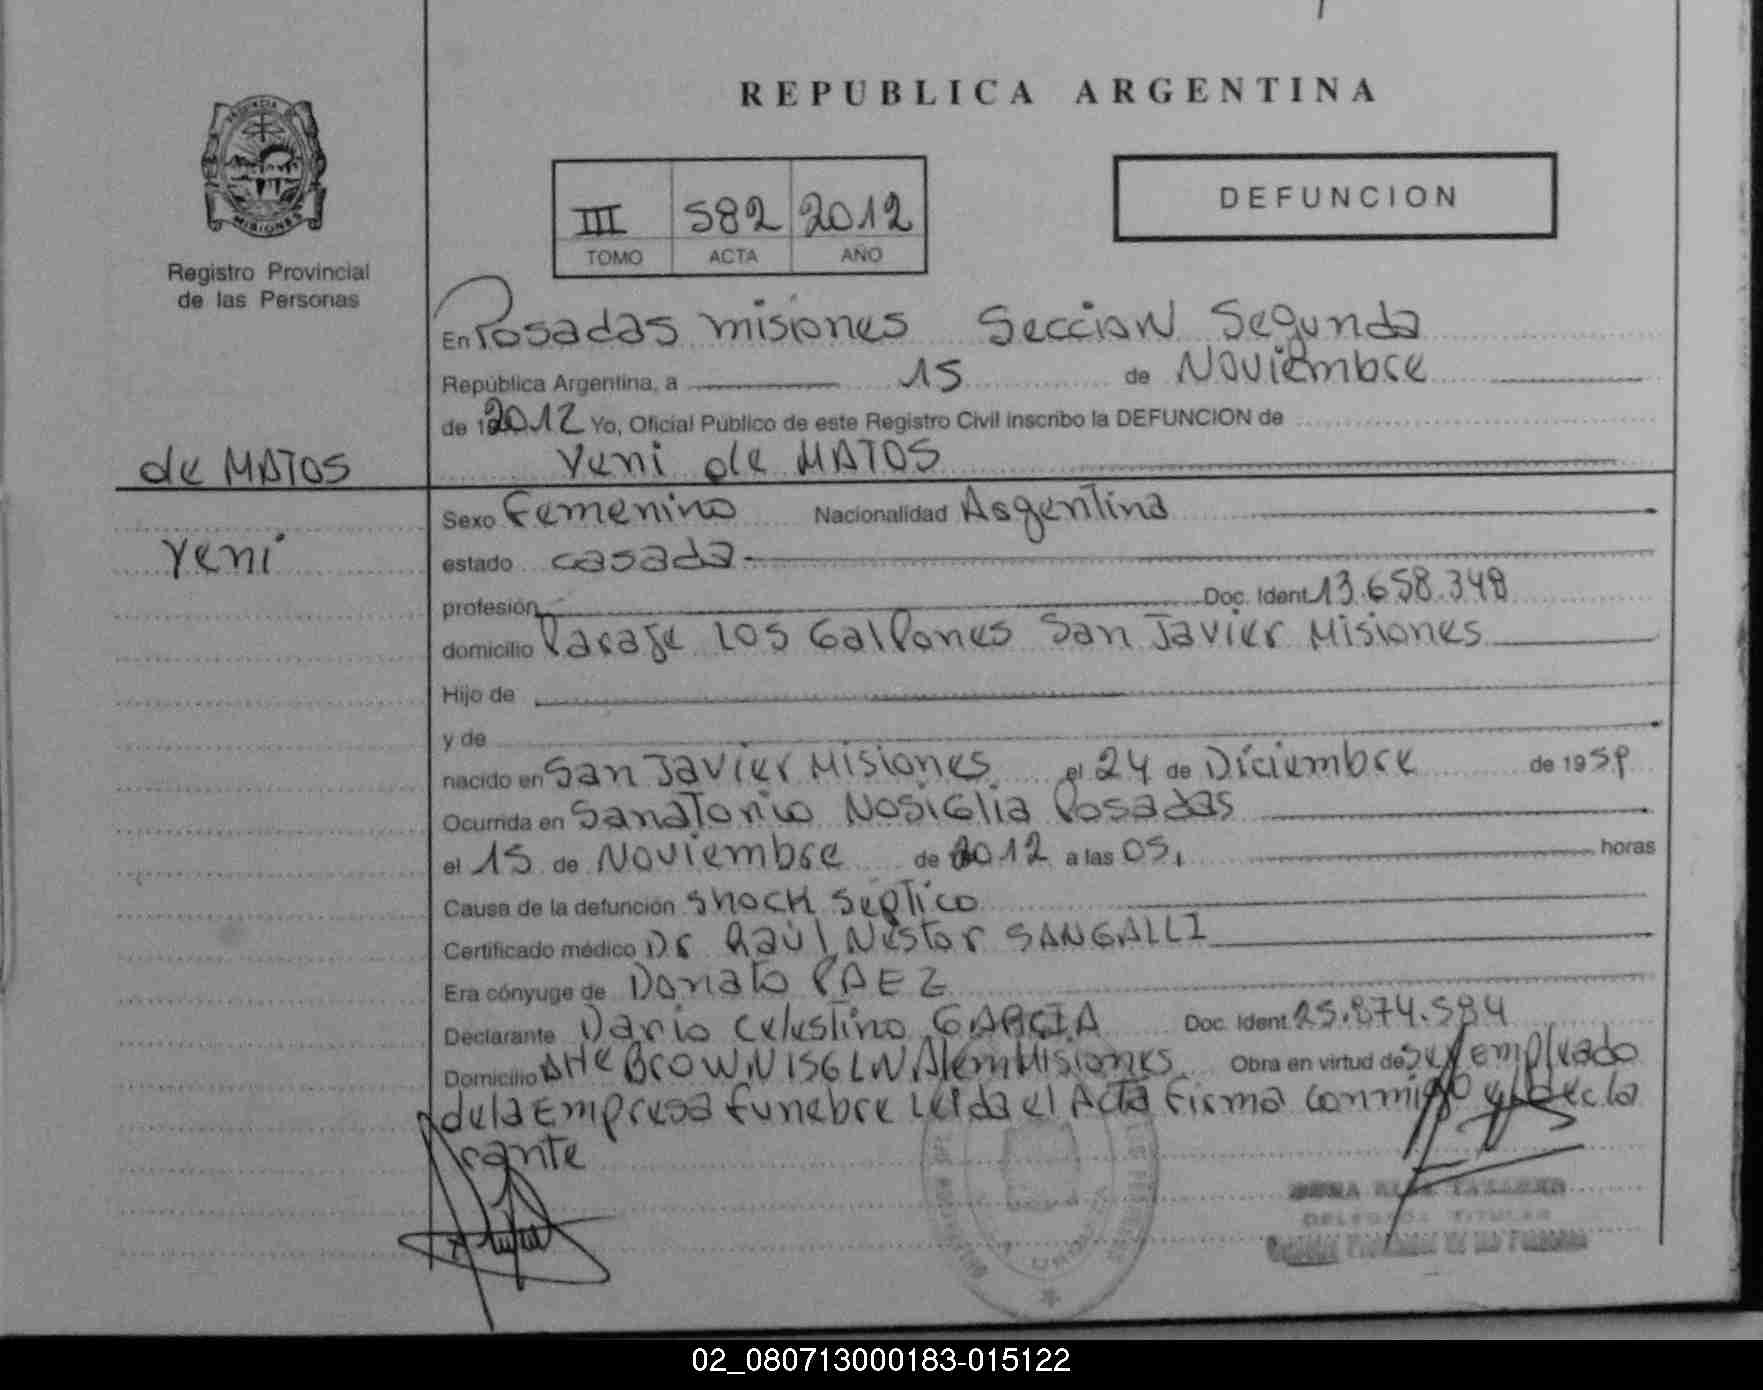 REPUBLICA ARGENTINA
PROVINCIA
MISIONES
Registro Provincial
de las Personas
III 582 2012
TOMO ACTA AÑO
DEFUNCION
En Posadas misiones Seccion Segunda
República Argentina, a 15 de Noviembre
de 2012 Yo, Oficial Público de este Registro Civil inscribo la DEFUNCION de
Yeni de MATOS
de MATOS
Yeni
Sexo Femenino Nacionalidad Argentina
estado casada
profesión Doc. Ident. 13.658.348
domicilio Paraje Los Galpones San Javier Misiones
Hijo de
y de
nacido en San Javier Misiones el 24 de Diciembre de 1959
Ocurrida en Sanatorio Nosiglia Posadas
el 15 de Noviembre de 2012 a las 05, horas
Causa de la defunción Shock Septico
Certificado médico Dr Raúl Nestor SANGALLI
Era cónyuge de Donato PAEZ
Declarante Dario Celestino GARCIA Doc. Ident. 25.874.584
Domicilio Alte Brown 156 LN Alem Misiones Obra en virtud de ser empleado
de la Empresa funebre Leida el Acta Firma conmigo el Decla
rante
DELEGADA TITULAR
Registro Provincial de las Personas
02_080713000183-015122